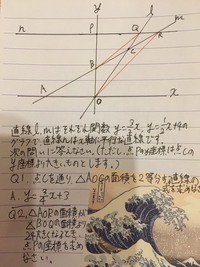 y
l
m
n
P
Q
R
C
B
A
O
x
直線l,mはそれぞれ関数 y=3/2x, y=1/2x+4の
グラフで,直線nはx軸に平行な直線です。
次の問いに答えなさい。(ただし,点Pのy座標は点Cの
y座標より大きいものとします。)
Q1. 点Cを通り,△AOCの面積を2等分する直線
の式を求めなさい
A. y=3/4x+3
Q2, △AORの面積が
△BOQの面積より
24大きくなるとき,
点Pの座標を求め
なさい。